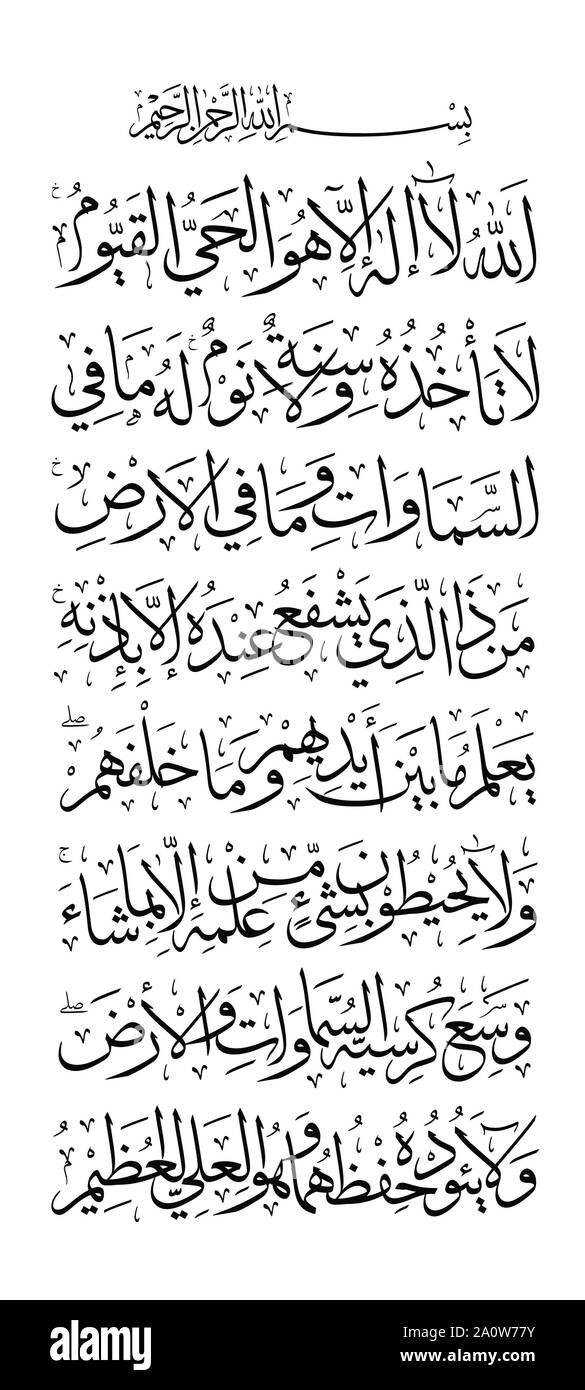 بِسْمِ اللهِ الرَّحْمٰنِ الرَّحِيْمِ
اَللهُ لَآ إِلٰهَ إِلَّا هُوَ الْحَيُّ الْقَيُّومُ
لَا تَأْخُذُهُ سِنَةٌ وَلَا نَوْمٌ لَهُ مَا فِي
السَّمَاوَاتِ وَمَا فِي الْاَرْضِ
مَنْ ذَا الَّذِي يَشْفَعُ عِنْدَهُ إِلَّا بِإِذْنِهِ
يَعْلَمُ مَا بَيْنَ أَيْدِيهِمْ وَمَا خَلْفَهُمْ
وَلَا يُحِيْطُوْنَ بِشَيْءٍ مِّنْ عِلْمِهِ إِلَّا بِمَا شَاءَ
وَسِعَ كُرْسِيُّهُ السَّمَاوَاتِ وَالْأَرْضَ
وَلَا يَئُوْدُهُ حِفْظُهُمَا وَهُوَ الْعَلِيُّ الْعَظِيْمُ
alamy
alamy
Image ID: 2A0W77Y
www.alamy.com